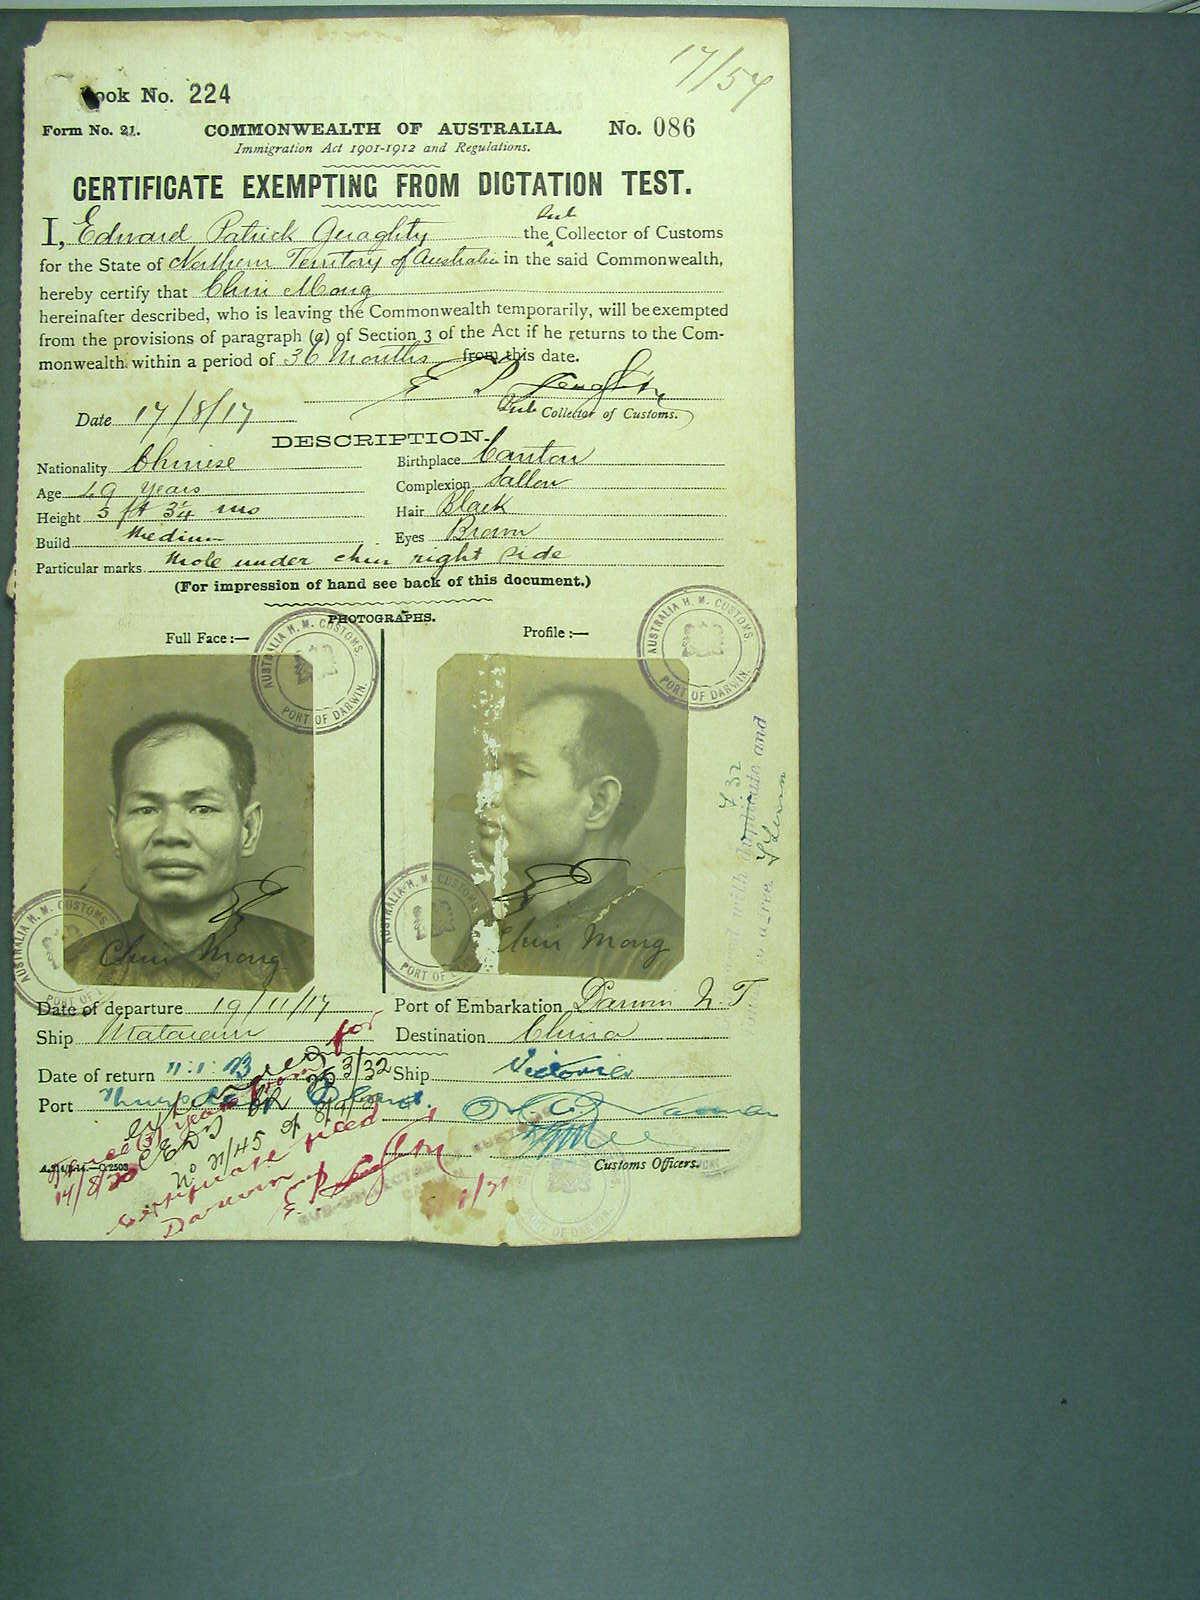 17/54
Book No. 224
Form No. 21. COMMONWEALTH OF AUSTRALIA. No. 086
Immigration Act 1901-1912 and Regulations.
CERTIFICATE EXEMPTING FROM DICTATION TEST.
I, Edward Patrick Geraghty the Sub Collector of Customs
for the State of Northern Territory of Australia in the said Commonwealth,
hereby certify that Chin Mong
hereinafter described, who is leaving the Commonwealth temporarily, will be exempted
from the provisions of paragraph (a) of Section 3 of the Act if he returns to the Com-
monwealth within a period of 36 Months from this date.
Date 17/8/17
Sub Collector of Customs.
DESCRIPTION.
Nationality Chinese Birthplace Canton
Age 49 years Complexion Sallow
Height 5 ft 3¼ ins Hair Black
Build Medium Eyes Brown
Particular marks mole under chin right side
(For impression of hand see back of this document.)
PHOTOGRAPHS.
Full Face:— Profile:—
AUSTRALIA H. M. CUSTOMS.
PORT OF DARWIN.
AUSTRALIA H. M. CUSTOMS.
PORT OF DARWIN.
AUSTRALIA H. M. CUSTOMS.
PORT OF
AUSTRALIA H. M. CUSTOMS.
PORT OF D
with duplicate and
Chin Mong
Chin Mong
Date of departure 19/11/17 Port of Embarkation Darwin N.T
Ship Mataram Destination China
Date of return 11:1:23 Ship Victoria
Port Thursday Island.
for
3/32
(3) years from
14/8/20
No 21/45 of
Certificate
Darwin
Customs Officers.